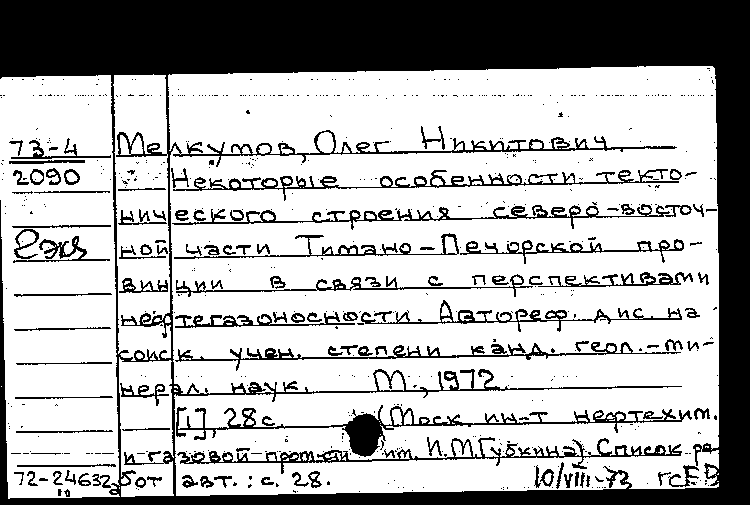 73-4 Мелкумов, Олег Никитович.
2090 Некоторые особенности текто-
нического строения северо-восточ-
2экз ной части Тимано-Печорской про-
винции в связи с перспективами
нефтегазоносности. Автореф. дис. на
соиск. учен. степени канд. геол.-ми-
нерал. наук. М., 1972
[1], 28 с. (Моск. ин-т нефтехим.
и газовой пром-сти им. И.М.Губкина). Список ра-
72-24632 бот авт.: с. 28. 10/VIII-72